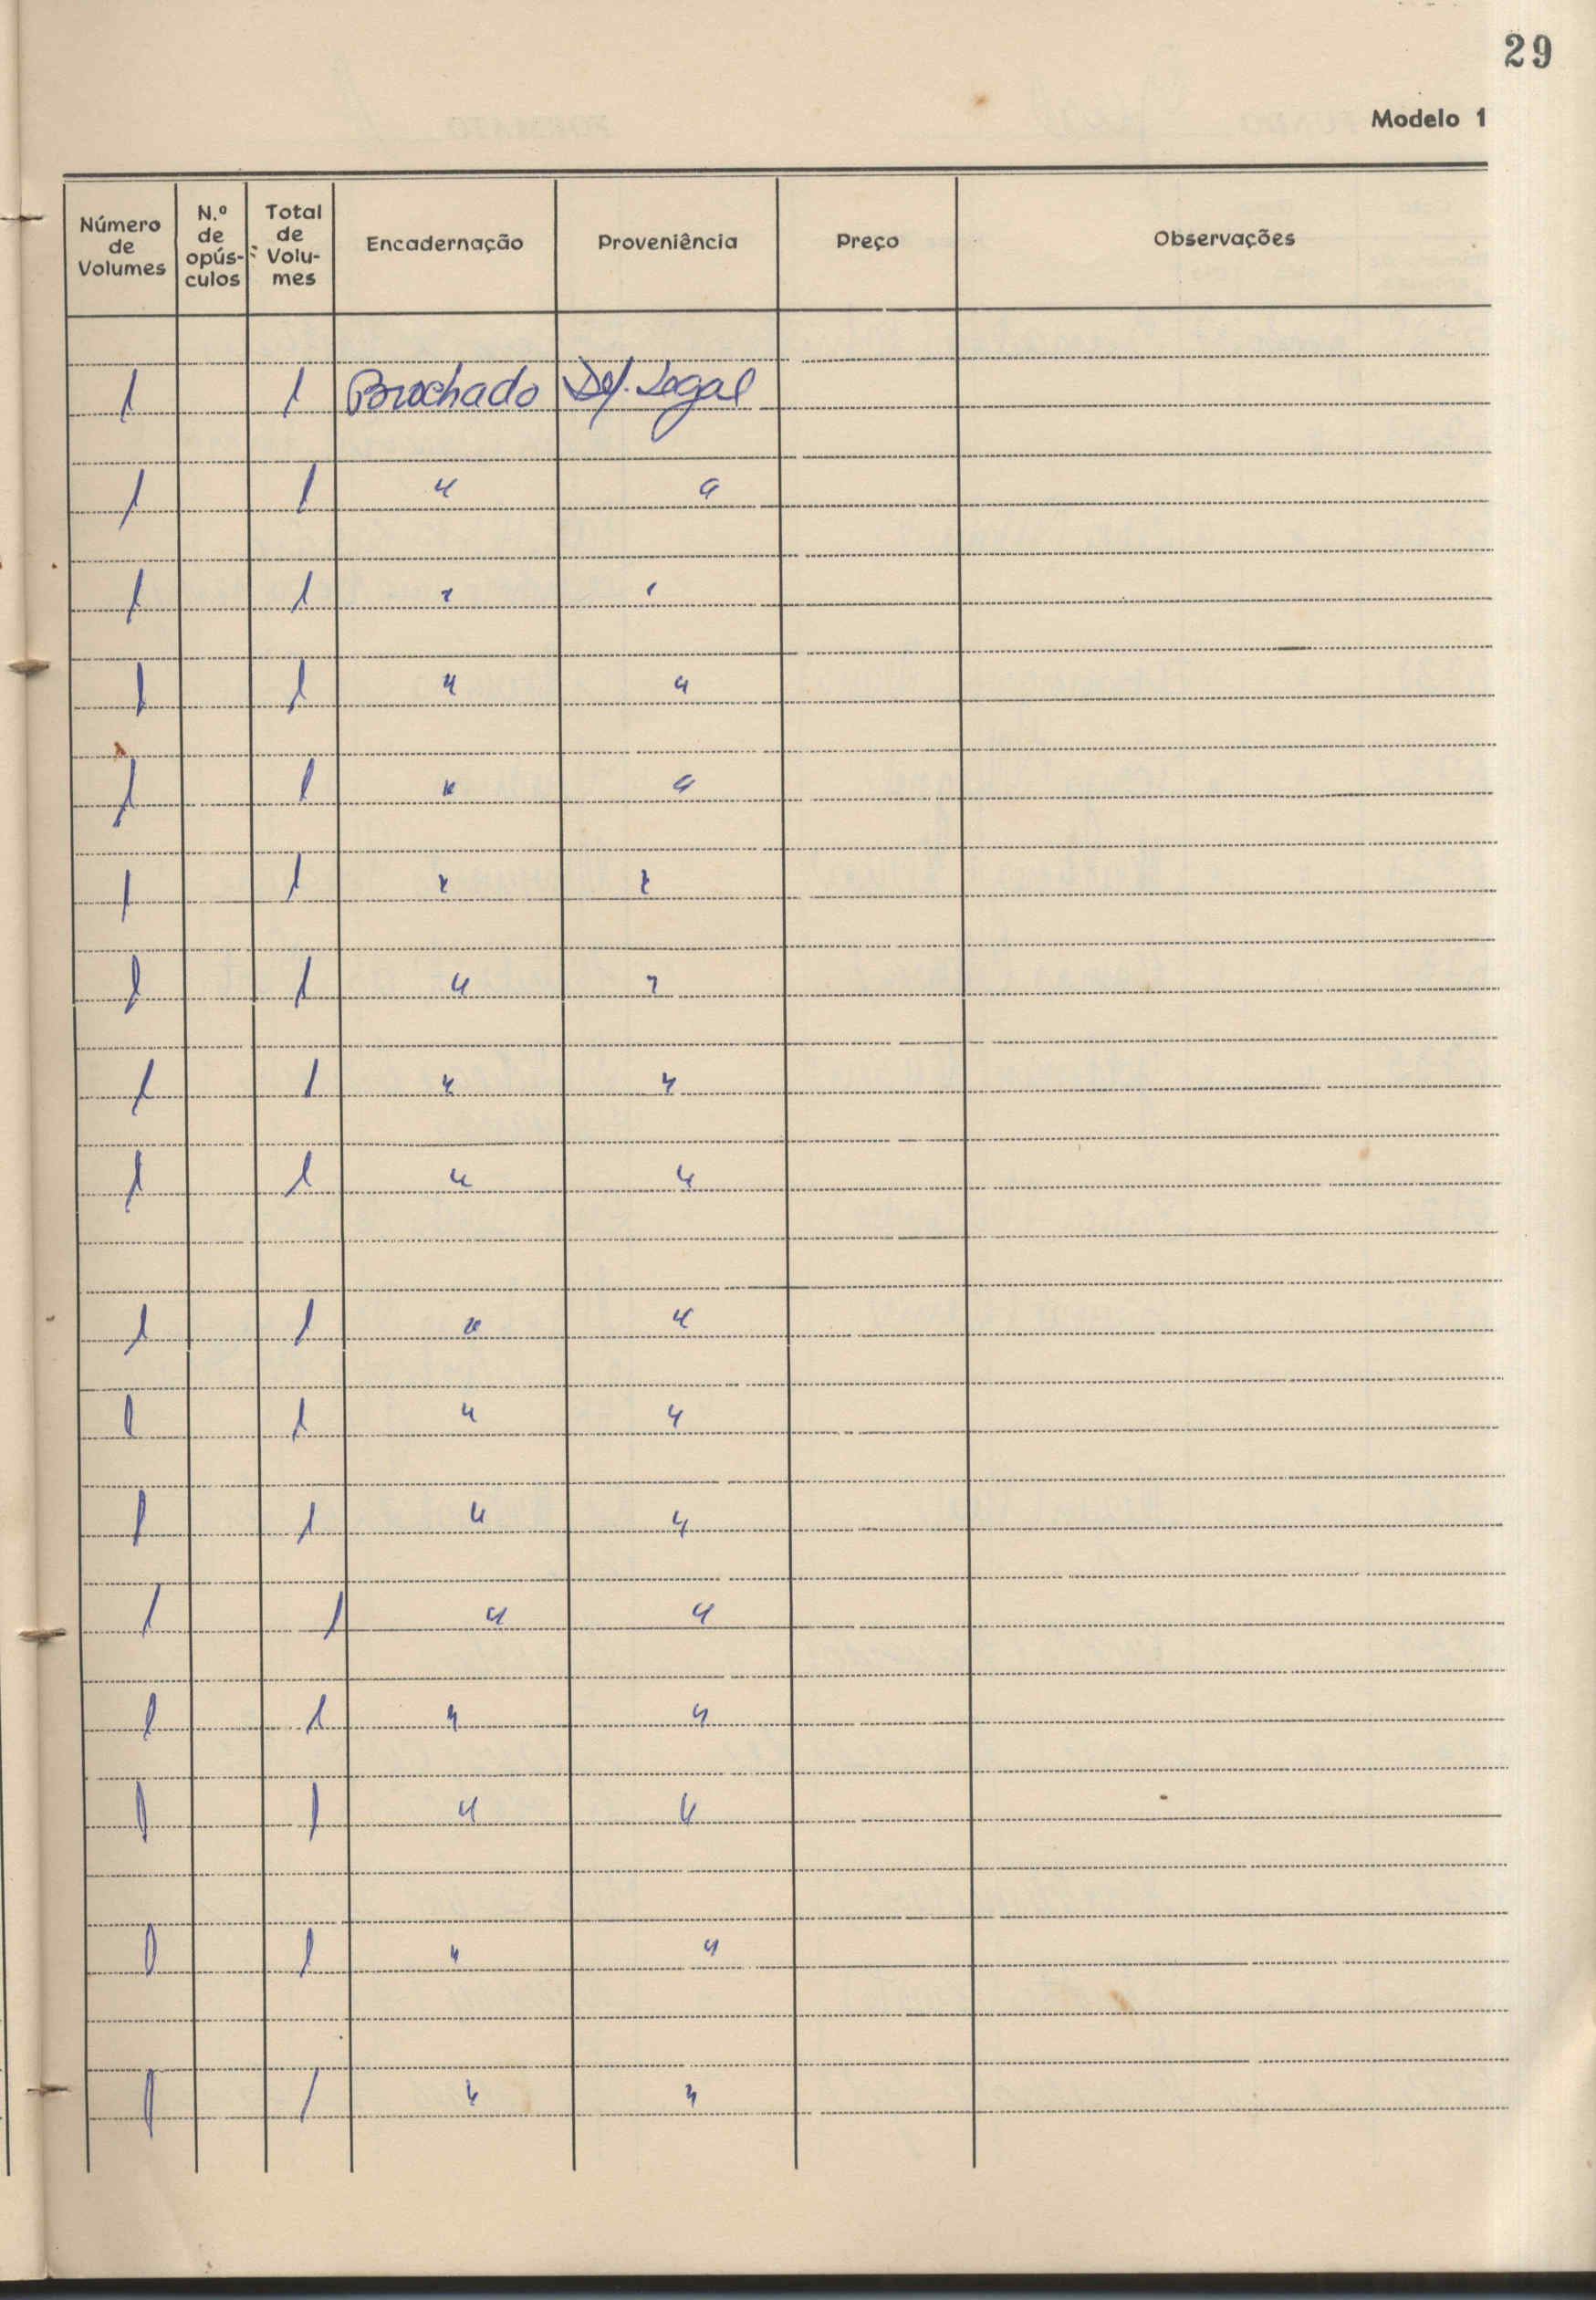 29
Modelo 1
Número de Volumes N.º de opús-culos Total de Volu-mes Encadernação Proveniência Preço Observações
1 1 Brochado Dep. Legal
1 1 " "
1 1 " "
1 1 " "
1 1 " "
1 1 " "
1 1 " "
1 1 " "
1 1 " "
1 1 " "
1 1 " "
1 1 " "
1 1 " "
1 1 " "
1 1 " "
1 1 " "
1 1 " "